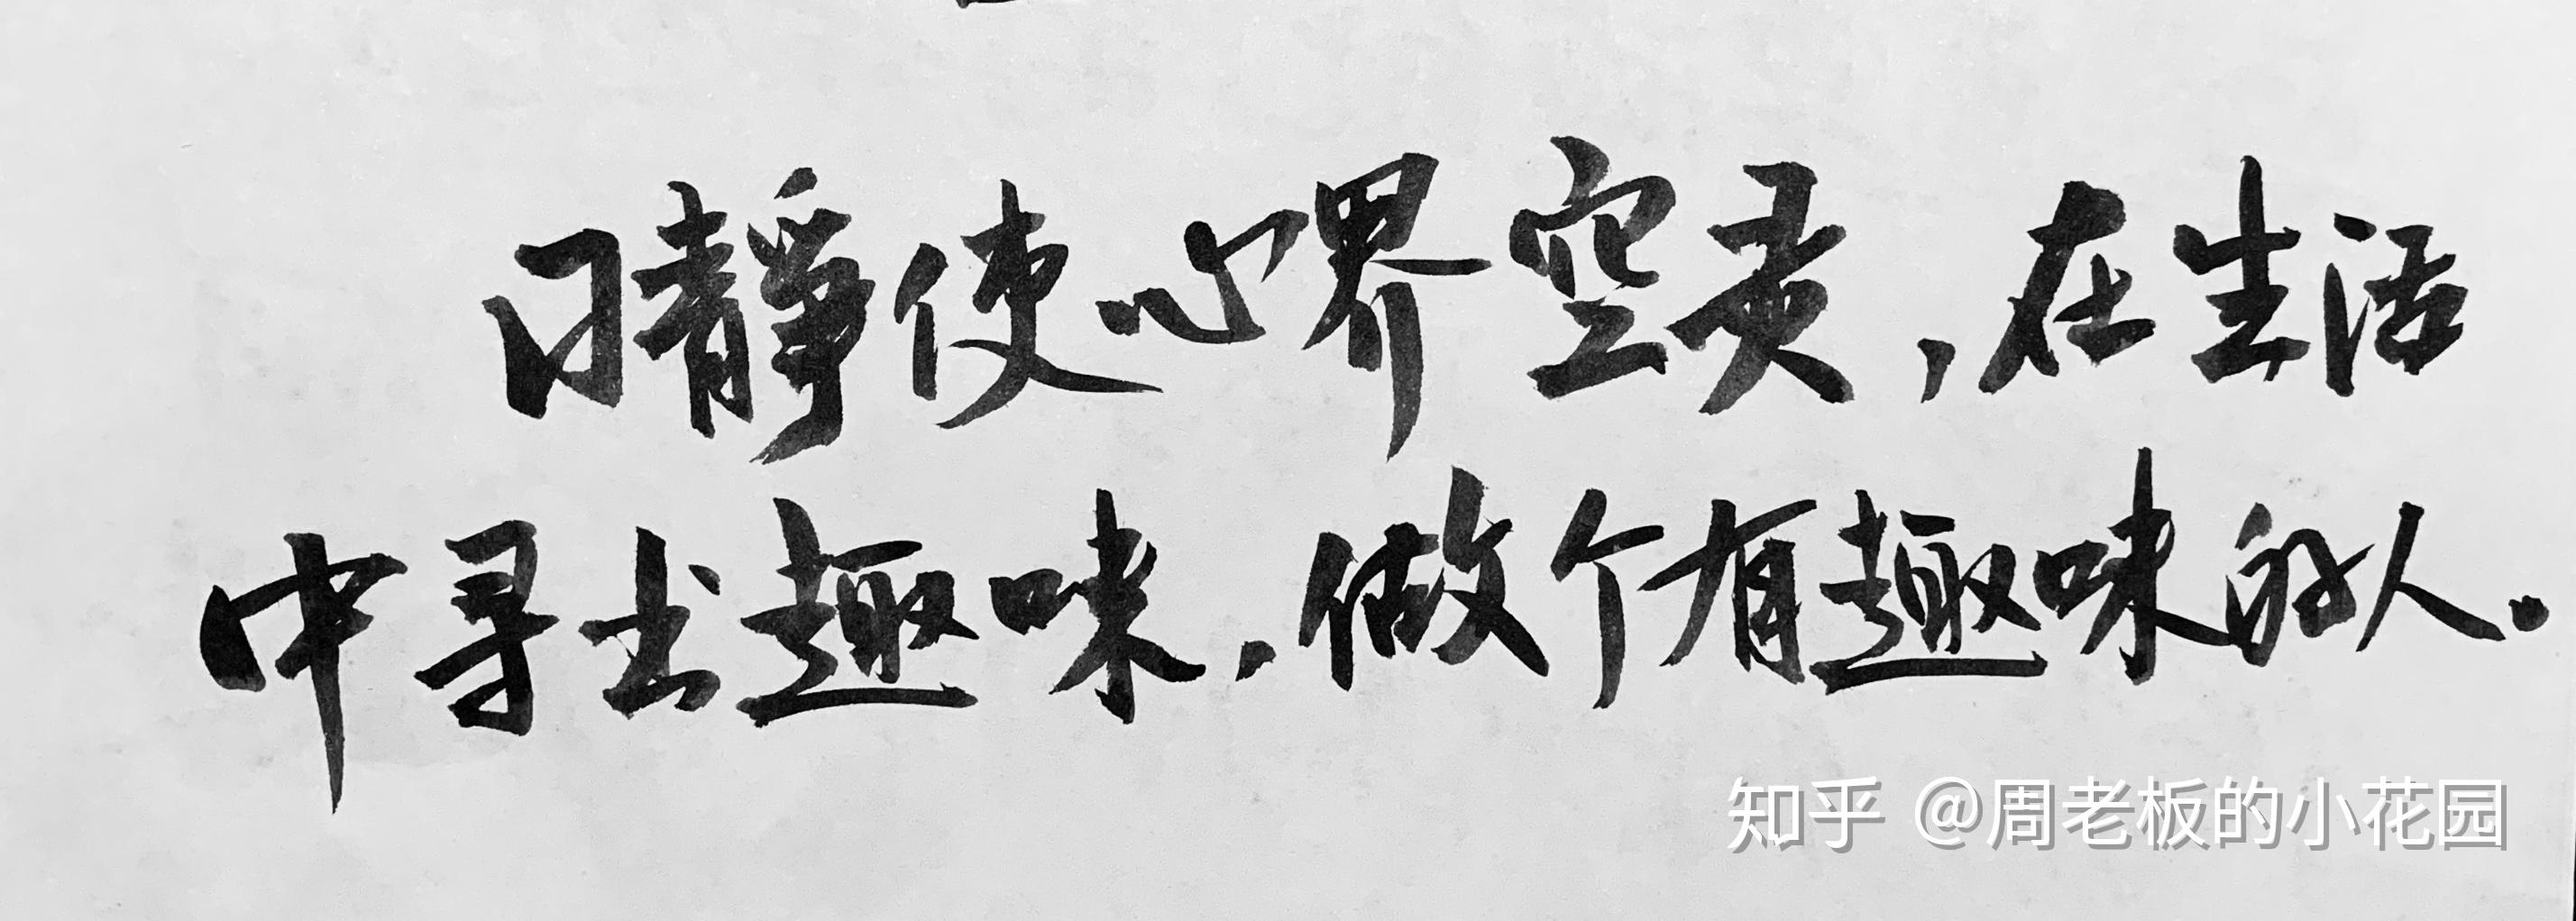 日靜使心界空灵，在生活
中寻出趣味，做个有趣味的人。
知乎 @周老板的小花园